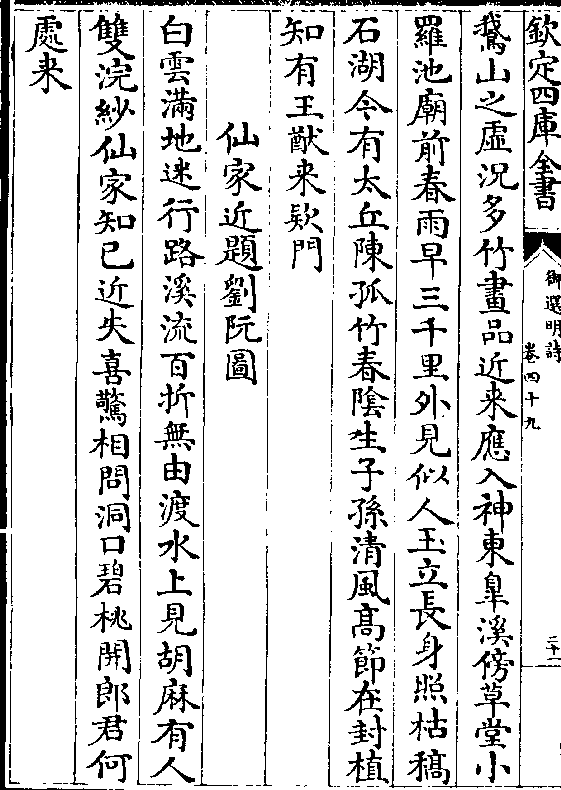 欽定四庫全書
御選明詩
卷四十九
二十一
鵞山之虛況多竹畫品近来應入神東臯溪傍草堂小
羅池廟前春雨早三千里外見似人玉立長身照枯稿
石湖今有太丘陳孤竹春陰生子孫清風髙節在封植
知有王猷来欵門
仙家近題劉阮圖
白雲滿地迷行路溪流百折無由渡水上見胡麻有人
雙浣紗仙家知已近失喜驚相問洞口碧桃開郎君何
處来